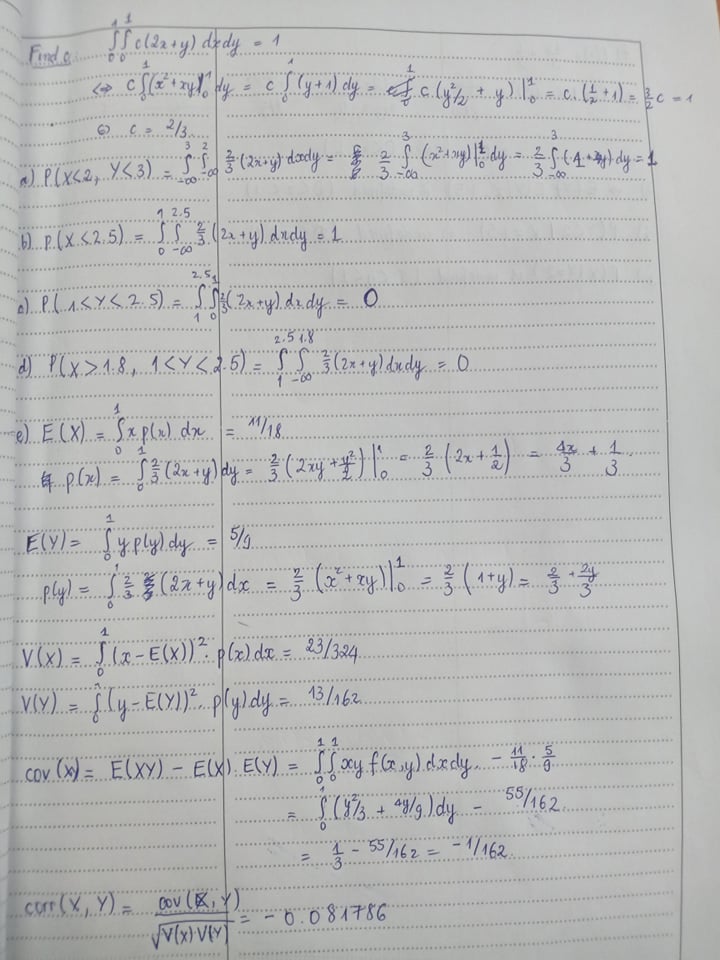 Find c: ∫₀¹∫₀¹ c(2x+y) dxdy = 1
⇔ c ∫₀¹ (x²+xy)|₀¹ dy = c ∫₀¹ (y+1) dy = c (y²/2 + y) |₀¹ = c. (1/2 + 1) = 3/2 c = 1
⇔ c = 2/3
a) P(X<2, Y<3) = ∫₋∞³ ∫₋∞² 2/3 (2x+y) dxdy = 2/3 ∫₋∞³ (x²+xy)|₀¹ dy = 2/3 ∫₋∞³ (1+y) dy = 1
b) P(X<2.5) = ∫₀¹ ∫₋∞^2.5 2/3 (2x+y) dxdy = 1
c) P(1<Y<2.5) = ∫₁^2.5 ∫₀¹ 2/3 (2x+y) dxdy = 0
d) P(X>1.8, 1<Y<2.5) = ∫₁^2.5 ∫₋∞^1.8 2/3 (2x+y) dxdy = 0
e) E(X) = ∫₀¹ x p(x) dx = 11/18
p(x) = ∫₀¹ 2/3 (2x+y) dy = 2/3 (2xy + y²/2) |₀¹ = 2/3 (2x + 1/2) = 4x/3 + 1/3
E(Y) = ∫₀¹ y p(y) dy = 5/9
p(y) = ∫₀¹ 2/3 (2x+y) dx = 2/3 (x²+xy)|₀¹ = 2/3 (1+y) = 2/3 + 2y/3
V(X) = ∫₀¹ (x-E(X))². p(x) dx = 23/324
V(Y) = ∫₀¹ (y-E(Y))². p(y) dy = 13/162
cov(x) = E(XY) - E(X).E(Y) = ∫₀¹∫₀¹ xy f(x,y) dxdy. - 11/18 . 5/9
= ∫₀¹ (y²/3 + 4y/9) dy - 55/162
= 1/3 - 55/162 = -1/162
corr(X, Y) = cov(X, Y) / √V(X).V(Y) = -0.081786